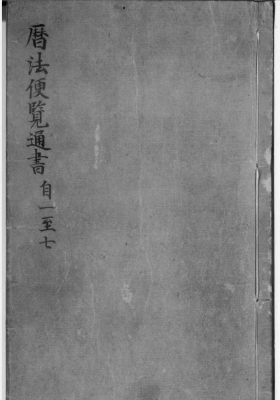 曆法便覽通書 自一至七